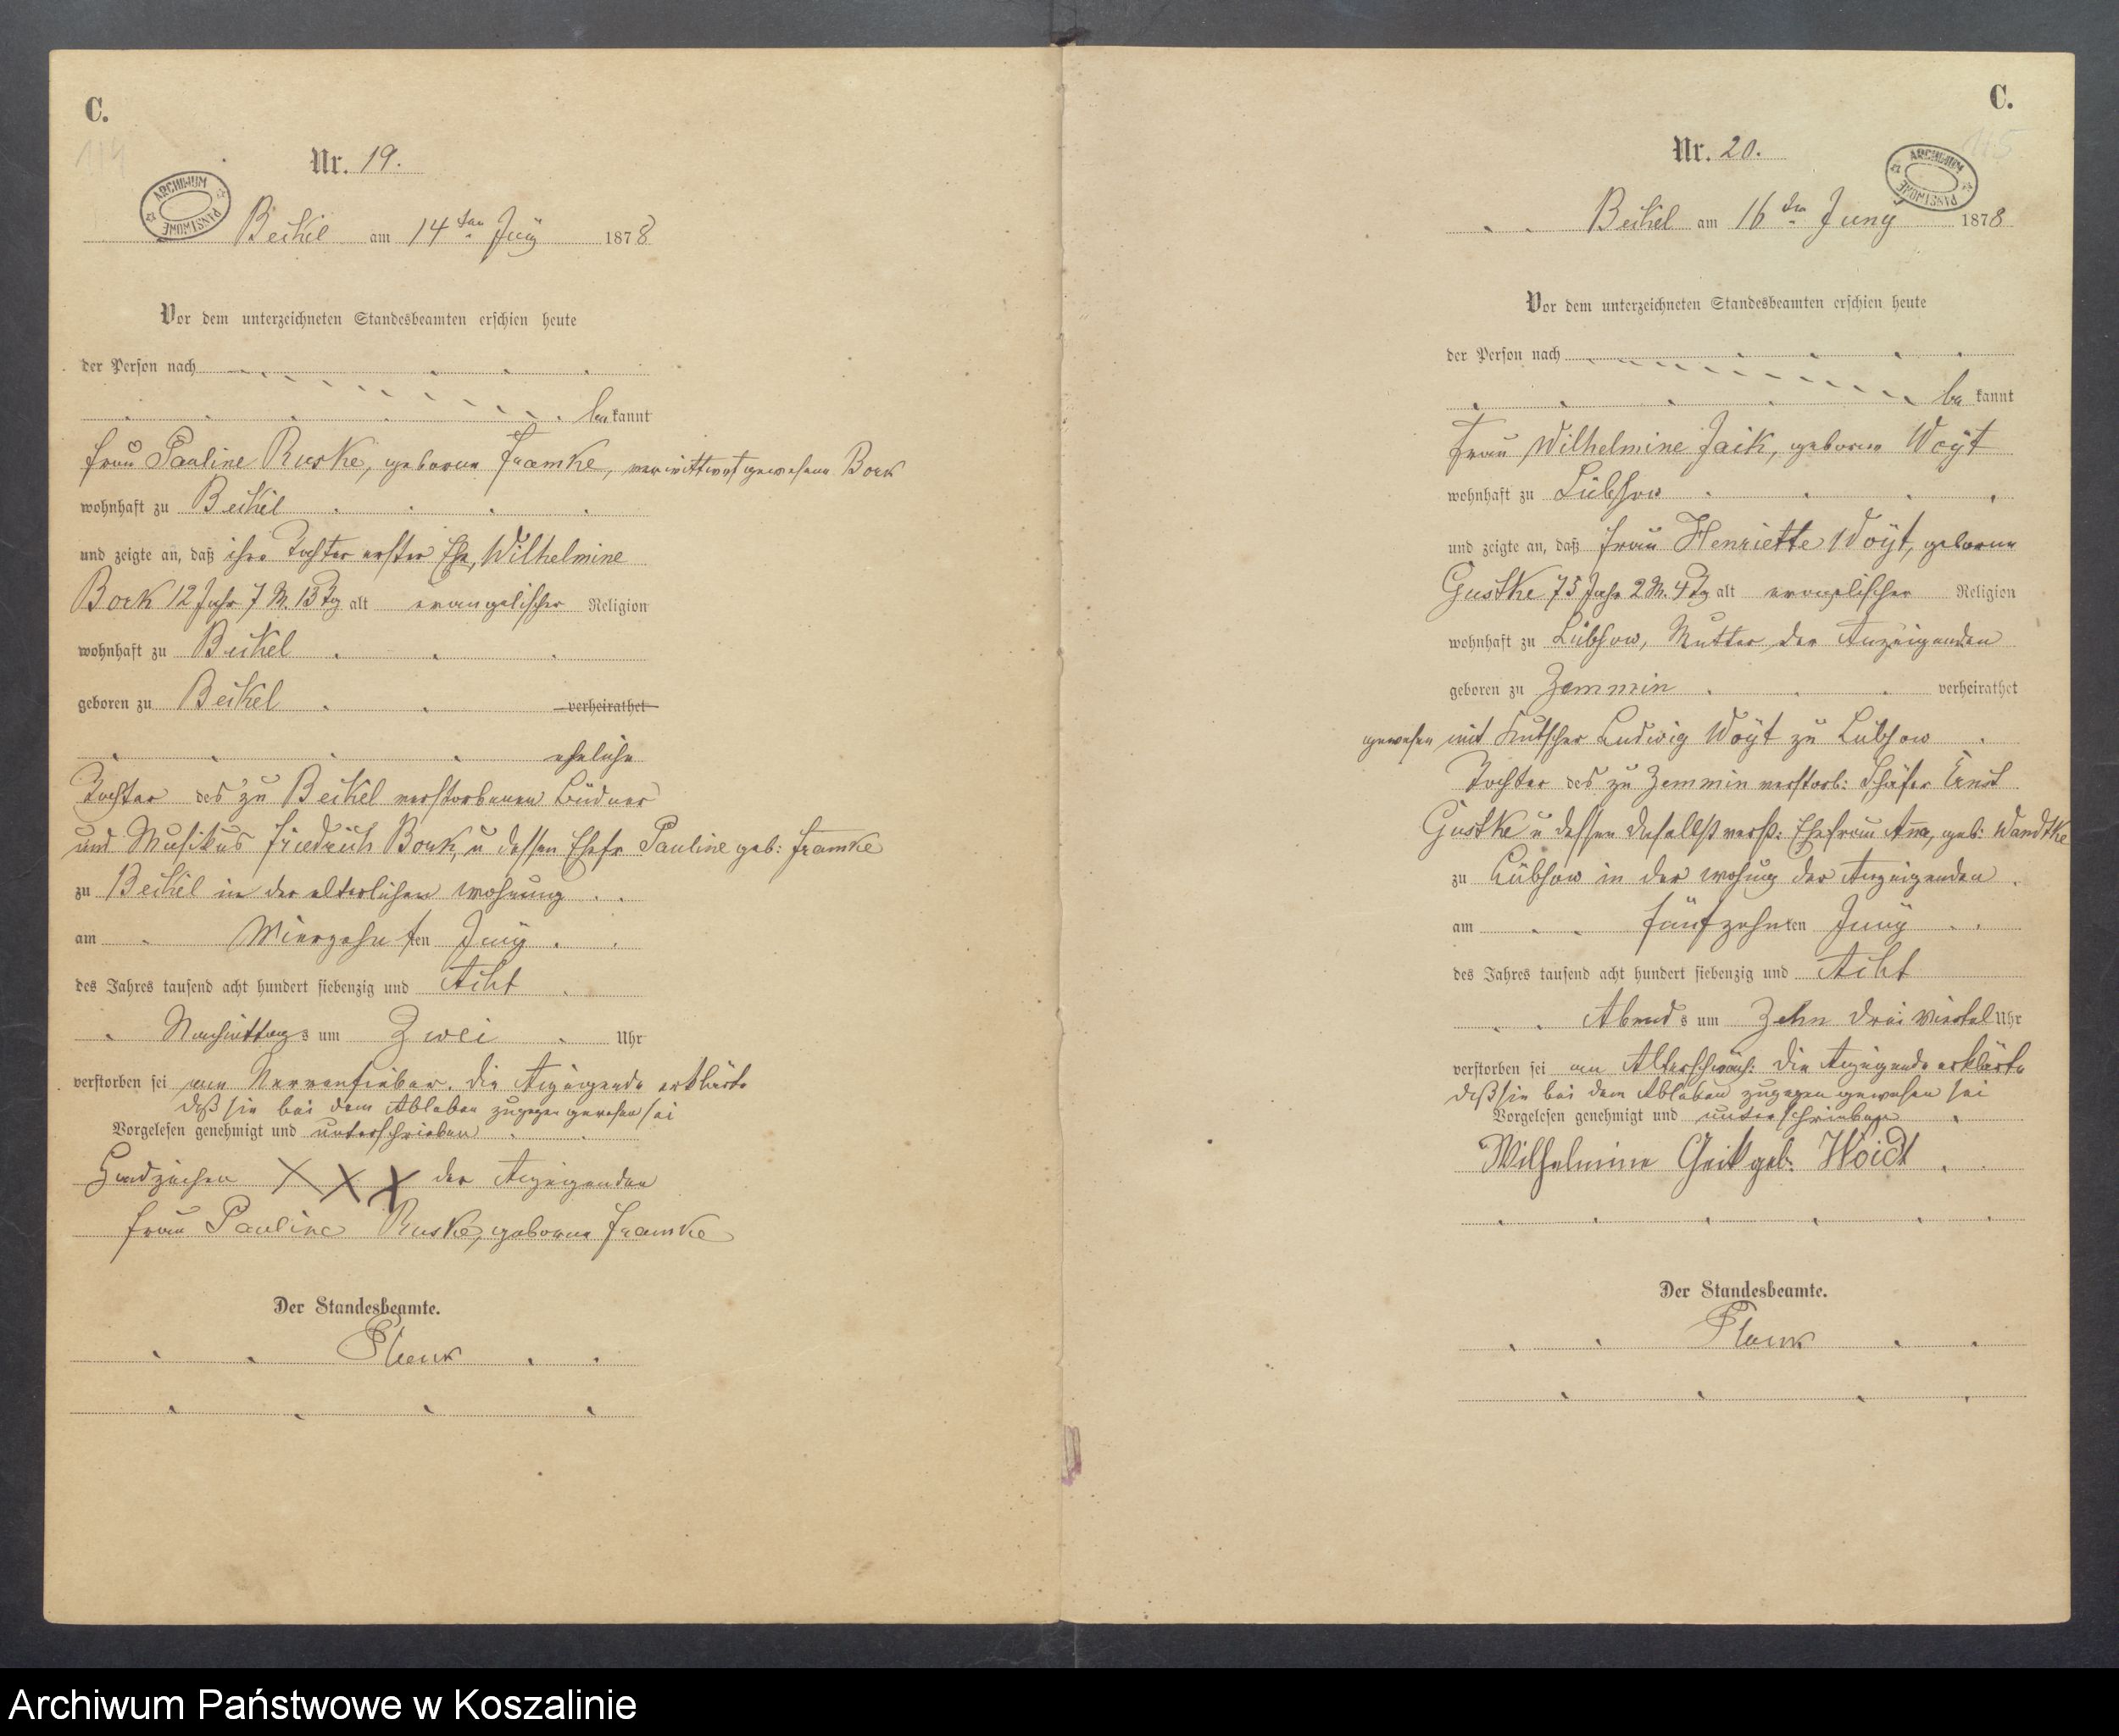 C.
114
Nr. 19.
ARCHIWUM PAŃSTWOWE
Beikel am 14ten Juny 1878
Vor dem unterzeichneten Standesbeamten erschien heute
der Person nach
bekannt
Frau Pauline Ruske, geborene Framke, verwittwet gewesene Bork
wohnhaft zu Beikel
und zeigte an, daß ihre Tochter erster Ehe, Wilhelmine
Bork 12 Jahr 7 M. 13 Tg alt evangelischer Religion
wohnhaft zu Beikel
geboren zu Beikel verheirathet
eheliche
Tochter des zu Beikel verstorbenen Büdner
und Musikus Friedrich Bork, u dessen Ehefr Pauline geb: Framke
zu Beikel in der elterlichen Wohnung
am Vierzehnten Juny
des Jahres tausend acht hundert siebenzig und Acht
Nachmittags um Zwei Uhr
verstorben sei am Nervenfieber. Die Anzeigende erklärte
daß sie bei dem Ableben zugegen gewesen sei
Vorgelesen genehmigt und unterschrieben
Handzeichen X X X der Anzeigenden
Frau Pauline Ruske, geborene Framke
Der Standesbeamte.
C.
115
Nr. 20.
ARCHIWUM PAŃSTWOWE
Beikel am 16ten Juny 1878
Vor dem unterzeichneten Standesbeamten erschien heute
der Person nach
bekannt
Frau Wilhelmine Jaik, geborne Woyt
wohnhaft zu Lübsow
und zeigte an, daß Frau Henriette Woyt, geborene
Gustke 75 Jahr 2 M. 4 Tg alt evangelischer Religion
wohnhaft zu Lübsow, Mutter der Anzeigenden
geboren zu Zemmin verheirathet
gewesen mit Kutscher Ludwig Woyt zu Lübsow
Tochter des zu Zemmin verstorb: Schäfer Ernst
Gustke u dessen daselbst verst: Ehefrau Anna, geb: Wandtke
zu Lübsow in der Wohnung der Anzeigenden
am fünfzehnten Juny
des Jahres tausend acht hundert siebenzig und Acht
Abends um Zehn drei Viertel Uhr
verstorben sei an Altersschwäch: Die Anzeigende erklärte
daß sie bei dem Ableben zugegen gewesen sei
Vorgelesen genehmigt und unterschrieben
Wilhelmine Geik geb. Woidt
Der Standesbeamte.
Archiwum Państwowe w Koszalinie